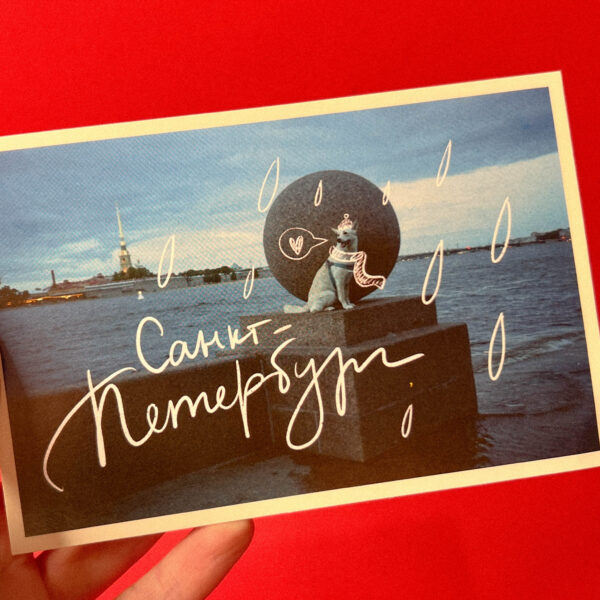 Санкт-
Петербург